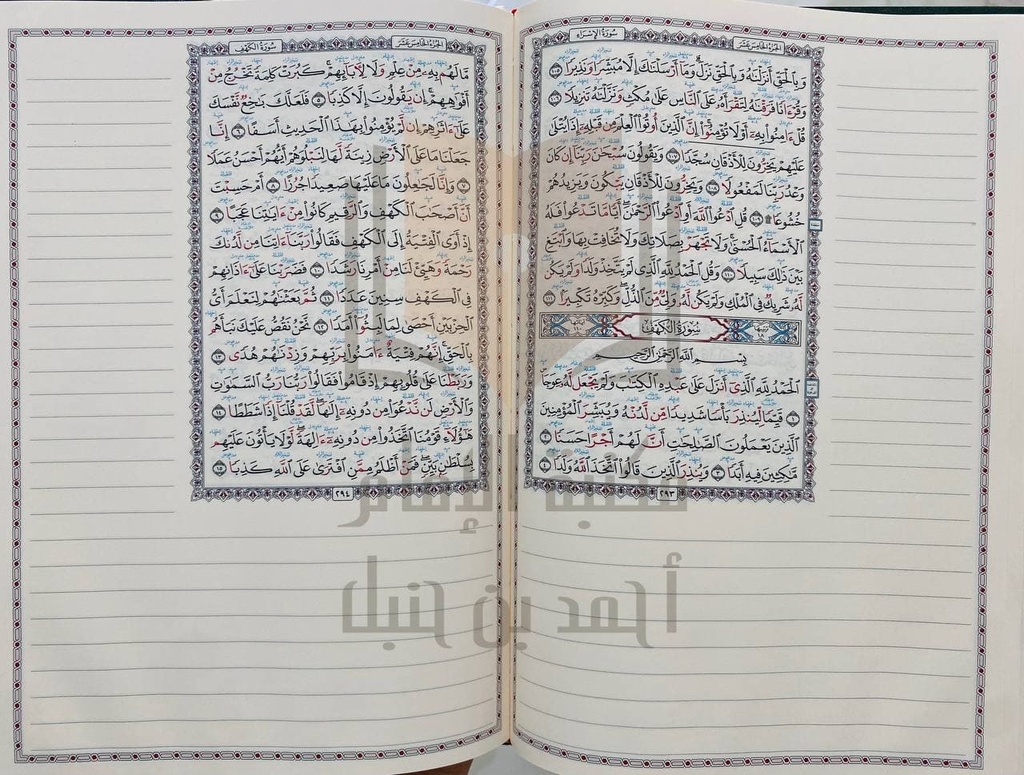 الجزء الخامس عشر
سورة الإسراء
وَبِالْحَقِّ أَنزَلْنَاهُ وَبِالْحَقِّ نَزَلَ وَمَا أَرْسَلْنَاكَ إِلَّا مُبَشِّرًا وَنَذِيرًا ١٠٥
وَقُرْءَانًا فَرَقْنَاهُ لِتَقْرَأَهُ عَلَى النَّاسِ عَلَى مُكْثٍ وَنَزَّلْنَاهُ تَنزِيلًا ١٠٦
قُلْ ءَامِنُوا بِهِ أَوْ لَا تُؤْمِنُوا إِنَّ الَّذِينَ أُوتُوا الْعِلْمَ مِن قَبْلِهِ إِذَا يُتْلَى
عَلَيْهِمْ يَخِرُّونَ لِلْأَذْقَانِ سُجَّدًا ١٠٧ وَيَقُولُونَ سُبْحَنَ رَبِّنَا إِن كَانَ
وَعْدُ رَبِّنَا لَمَفْعُولًا ١٠٨ وَيَخِرُّونَ لِلْأَذْقَانِ يَبْكُونَ وَيَزِيدُهُمْ
خُشُوعًا ۩ ١٠٩ قُلِ ادْعُوا اللَّهَ أَوِ ادْعُوا الرَّحْمَنَ أَيًّا مَّا تَدْعُوا فَلَهُ
الْأَسْمَاءُ الْحُسْنَى وَلَا تَجْهَرْ بِصَلَاتِكَ وَلَا تُخَافِتْ بِهَا وَابْتَغِ
بَيْنَ ذَلِكَ سَبِيلًا ١١٠ وَقُلِ الْحَمْدُ لِلَّهِ الَّذِي لَمْ يَتَّخِذْ وَلَدًا وَلَمْ يَكُن
لَّهُ شَرِيكٌ فِي الْمُلْكِ وَلَمْ يَكُن لَّهُ وَلِيٌّ مِّنَ الذُّلِّ وَكَبِّرْهُ تَكْبِيرًا ١١١
سورة الكهف
بِسْمِ اللَّهِ الرَّحْمَنِ الرَّحِيمِ
الْحَمْدُ لِلَّهِ الَّذِي أَنزَلَ عَلَى عَبْدِهِ الْكِتَبَ وَلَمْ يَجْعَل لَّهُ عِوَجًا
١ قَيِّمًا لِّيُنذِرَ بَأْسًا شَدِيدًا مِّن لَّدُنْهُ وَيُبَشِّرَ الْمُؤْمِنِينَ
الَّذِينَ يَعْمَلُونَ الصَّلِحَتِ أَنَّ لَهُمْ أَجْرًا حَسَنًا ٢
مَّاكِثِينَ فِيهِ أَبَدًا ٣ وَيُنذِرَ الَّذِينَ قَالُوا اتَّخَذَ اللَّهُ وَلَدًا ٤
٢٩٣
الجزء الخامس عشر
سورة الكهف
مَّا لَهُم بِهِ مِنْ عِلْمٍ وَلَا لِءَابَائِهِمْ كَبُرَتْ كَلِمَةً تَخْرُجُ مِنْ
أَفْوَاهِهِمْ إِن يَقُولُونَ إِلَّا كَذِبًا ٥ فَلَعَلَّكَ بَاخِعٌ نَّفْسَكَ
عَلَى ءَاثَرِهِمْ إِن لَّمْ يُؤْمِنُوا بِهَذَا الْحَدِيثِ أَسَفًا ٦ إِنَّا
جَعَلْنَا مَا عَلَى الْأَرْضِ زِينَةً لَّهَا لِنَبْلُوَهُمْ أَيُّهُمْ أَحْسَنُ عَمَلًا
٧ وَإِنَّا لَجَاعِلُونَ مَا عَلَيْهَا صَعِيدًا جُرُزًا ٨ أَمْ حَسِبْتَ
أَنَّ أَصْحَبَ الْكَهْفِ وَالرَّقِيمِ كَانُوا مِنْ ءَايَتِنَا عَجَبًا ٩
إِذْ أَوَى الْفِتْيَةُ إِلَى الْكَهْفِ فَقَالُوا رَبَّنَا ءَاتِنَا مِن لَّدُنكَ
رَحْمَةً وَهَيِّئْ لَنَا مِنْ أَمْرِنَا رَشَدًا ١٠ فَضَرَبْنَا عَلَى ءَاذَانِهِمْ
فِي الْكَهْفِ سِنِينَ عَدَدًا ١١ ثُمَّ بَعَثْنَهُمْ لِنَعْلَمَ أَيُّ
الْحِزْبَيْنِ أَحْصَى لِمَا لَبِثُوا أَمَدًا ١٢ نَّحْنُ نَقُصُّ عَلَيْكَ نَبَأَهُم
بِالْحَقِّ إِنَّهُمْ فِتْيَةٌ ءَامَنُوا بِرَبِّهِمْ وَزِدْنَهُمْ هُدًى ١٣
وَرَبَطْنَا عَلَى قُلُوبِهِمْ إِذْ قَامُوا فَقَالُوا رَبُّنَا رَبُّ السَّمَوَتِ
وَالْأَرْضِ لَن نَّدْعُوَا مِن دُونِهِ إِلَهًا لَّقَدْ قُلْنَا إِذًا شَطَطًا ١٤
هَؤُلَاءِ قَوْمُنَا اتَّخَذُوا مِن دُونِهِ ءَالِهَةً لَّوْلَا يَأْتُونَ عَلَيْهِم
بِسُلْطَنٍ بَيِّنٍ فَمَنْ أَظْلَمُ مِمَّنِ افْتَرَى عَلَى اللَّهِ كَذِبًا ١٥
٢٩٤
مكتبة الإمام
أحمد بن حنبل